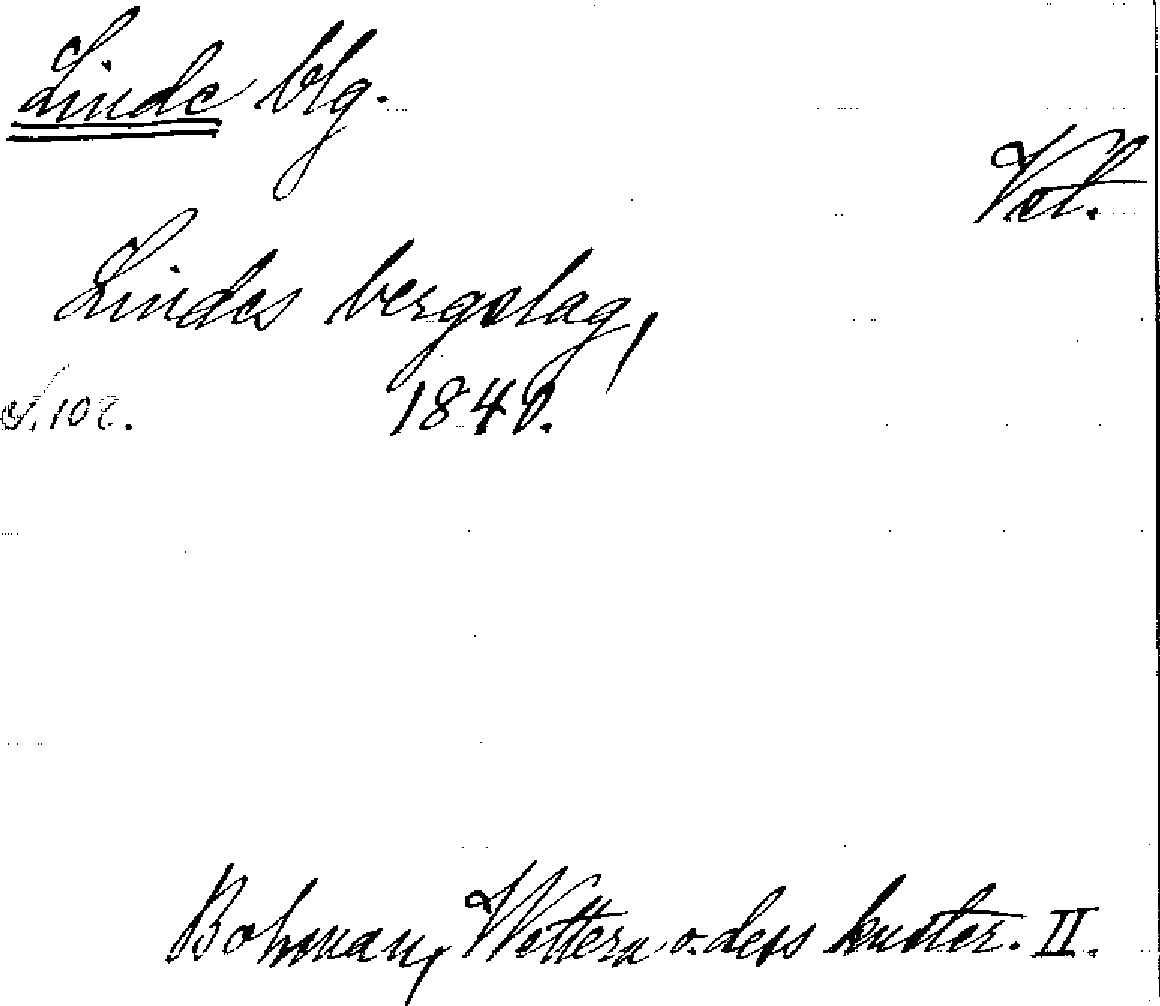 Linde blg.
Vstl.
Lindes bergslag,
s. 102. 1840.
Bohman, Wettern o. dess kuster. II.